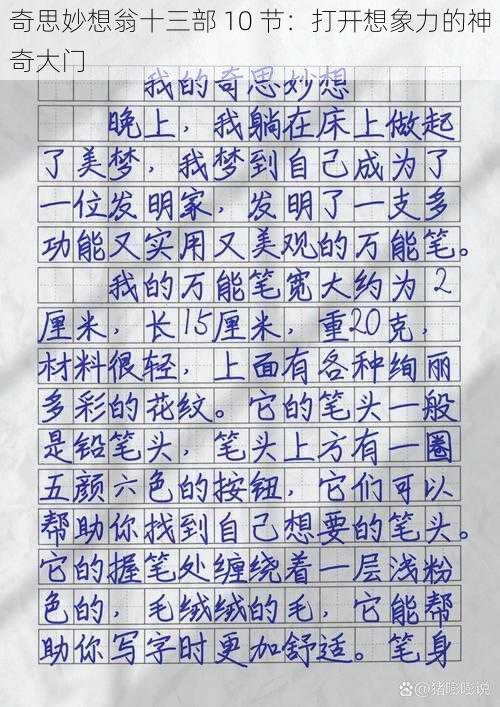 奇思妙想翁十三部 10 节：打开想象力的神
奇大门
我的奇思妙想
晚上，我躺在床上做起
了美梦，我梦到自己成为了
一位发明家，发明了一支多
功能又实用又美观的万能笔。
我的万能笔宽大约为2
厘米，长15厘米，重20克，
材料很轻，上面有各种绚丽
多彩的花纹。它的笔头一般
是铅笔头，笔头上方有一圈
五颜六色的按钮，它们可以
帮助你找到自己想要的笔头。
它的握笔处缠绕着一层浅粉
色的，毛绒绒的毛，它能帮
助你写字时更加舒适。笔身
@猪嘭嘭说